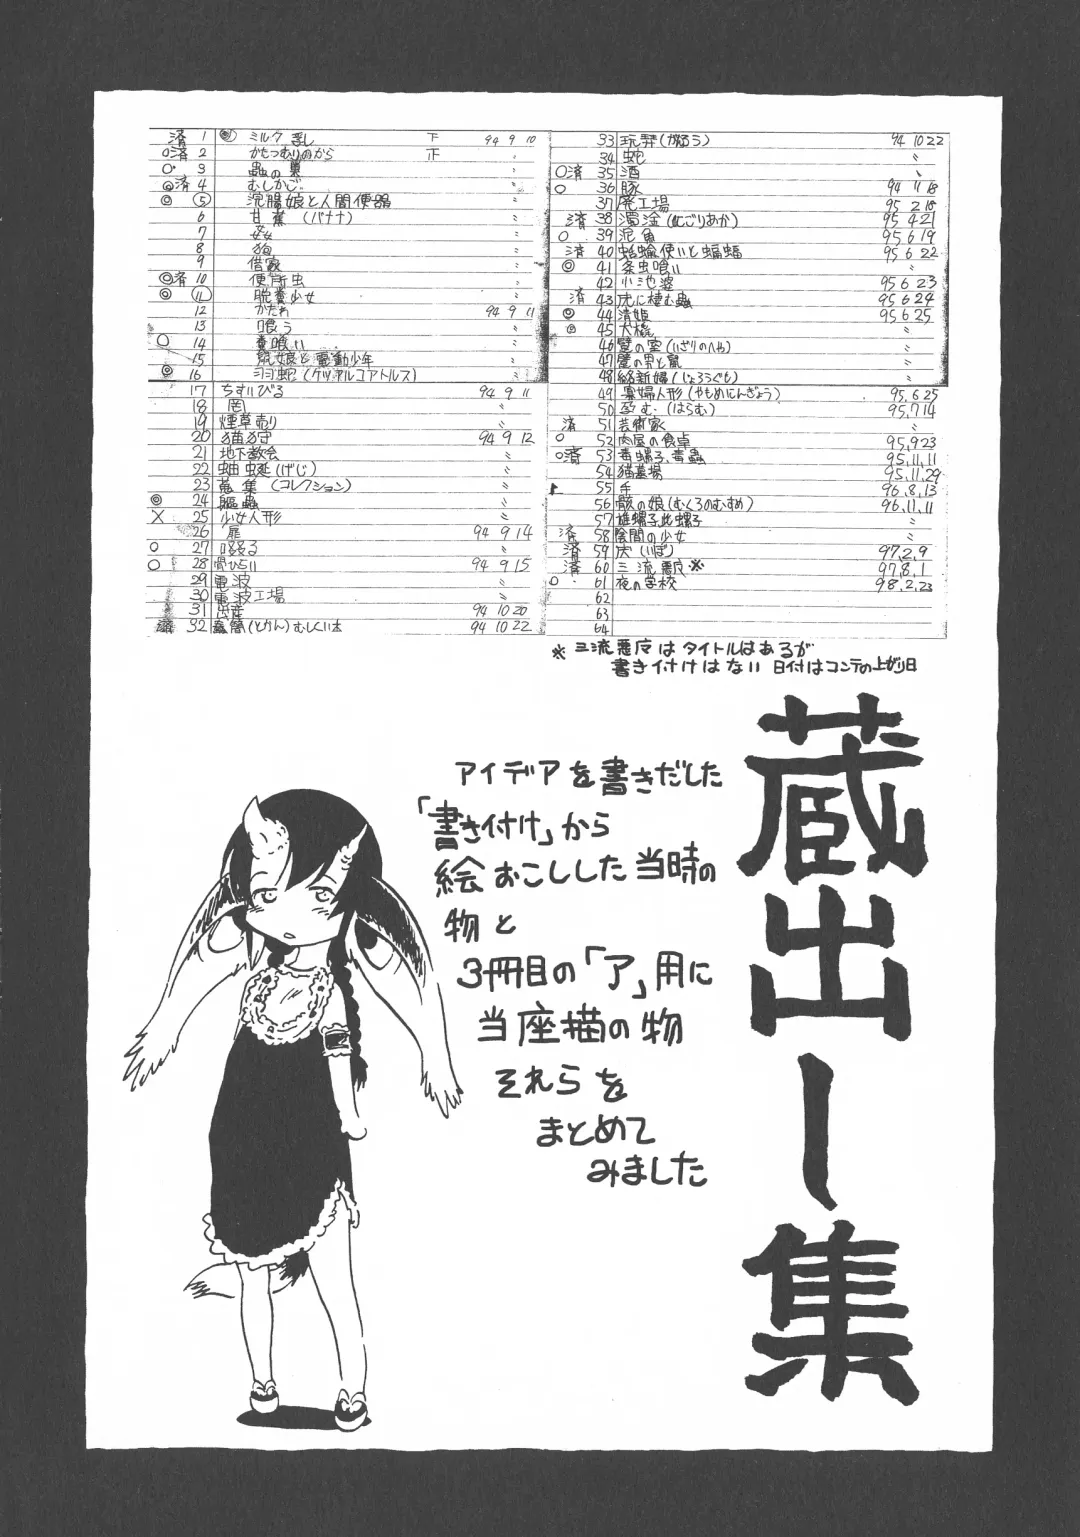 済 1 ◎ ミルク 乳し 下 94 9 10
○済 2 かたつむりのから 正 〃
○ 3 蟲の巣 〃
◎済 4 むしかご 〃
◎ ⑤ 浣腸娘と人間便器 〃
6 甘蕉(バナナ) 〃
7 姦 〃
8 狗 〃
9 借家 〃
◎済 10 便所虫 〃
◎ ⑪ 脱糞少女 〃
12 かたわ 94 9 11
13 喰う 〃
○ 14 糞喰い 〃
15 娘と電動少年 〃
◎ 16 羽蛇(ケツァルコアトルス) 〃
17 ちすいびる 94 9 11
18 岡 〃
19 煙草売り 〃
20 猫狩 94 9 12
21 地下教会 〃
22 蚰蜒(げじ) 〃
23 蒐集(コレクション) 〃
◎ 24 駆蟲 〃
X 25 少女人形 〃
26 扉 94 9 14
○ 27 〃
○ 28 骨ひらい 94 9 15
29 電波 〃
30 電波工場 〃
31 出産 94 10 20
済 32 蠧簡(とかん)むしくい本 94 10 22
33 玩弄(がろう) 94 10 22
34 蛇 〃
○済 35 酒 〃
○ 36 豚 94 11 18
37 廃工場 95 2 18
済 38 濁淦(にごりあか) 95 4 21
○ 39 泥魚 95 6 19
済 40 蛞蝓使いと蝙蝠 95 6 22
◎ 41 条虫喰い 〃
42 小池婆 95 6 23
済 43 虎に棲む蟲 95 6 24
◎ 44 清姫 95 6 25
◎ 45 大橇 〃
46 躄の室(いざりのへや) 〃
47 躄の男と鼠 〃
48 絡新婦(じょろうぐも) 〃
49 寡婦人形(やもめにんぎょう) 95,6 25
50 孕む(はらむ) 95,7 14
済 51 芸術家
○ 52 肉屋の食卓 95,9 23
○済 53 毒螺子、毒蟲 95,11,11
54 猫墓場 95,11,29
55 手 96,8,13
56 骸の娘(むくろのむすめ) 96,11,11
57 雄螺子此螺子 〃
済 58 陰間の少女 〃
済 59 疣(いぼ) 97,2,9
済 60 三流悪戯※ 97,8,1
○ 61 夜の学校 98,2,23
62
63
64
※三流悪戯はタイトルはあるが
書き付けはない 日付はコンテの上がり日
蔵出し集
アイデアを書きだした
「書き付け」から
絵おこしした当時の
物と
3冊目の「ア」用に
当座描の物
それらを
まとめて
みました